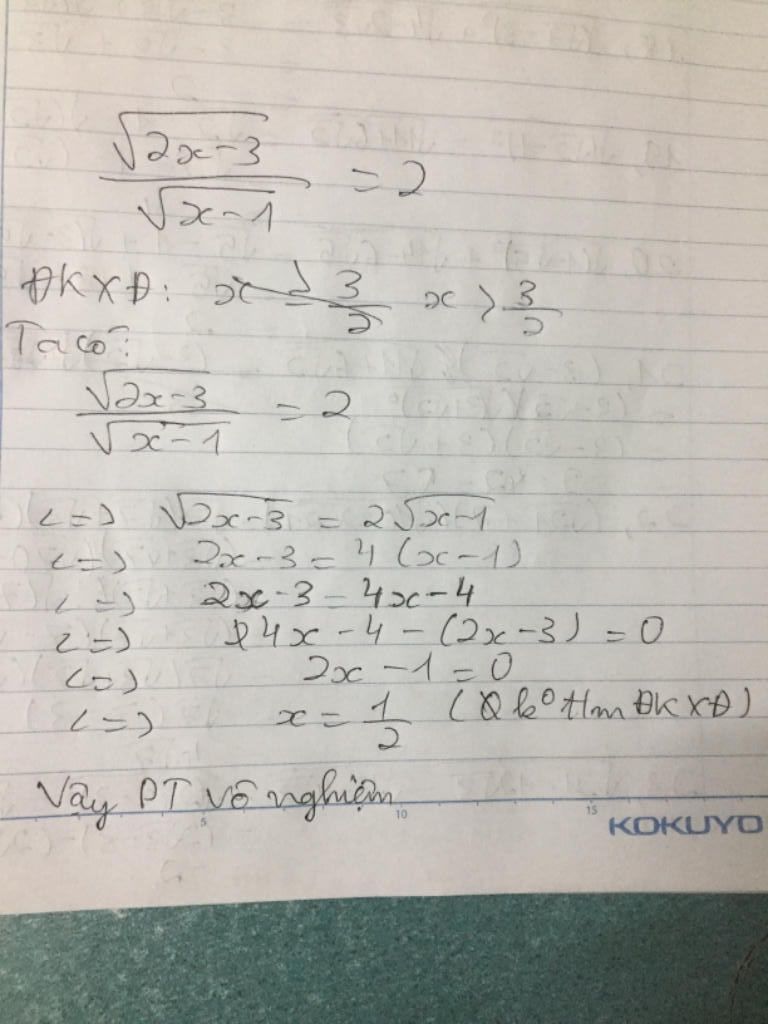 √2x-3 / √x-1 = 2
ĐKXĐ: x ≥ 3/2 x > 3/2
Ta có:
√2x-3 / √x-1 = 2
<=> √2x-3 = 2√x-1
<=> 2x-3 = 4(x-1)
<=> 2x-3 = 4x-4
<=> 4x-4-(2x-3) = 0
<=> 2x-1 = 0
<=> x = 1/2 (k° t/m ĐKXĐ)
Vậy PT vô nghiệm
5 10 15
KOKUYO